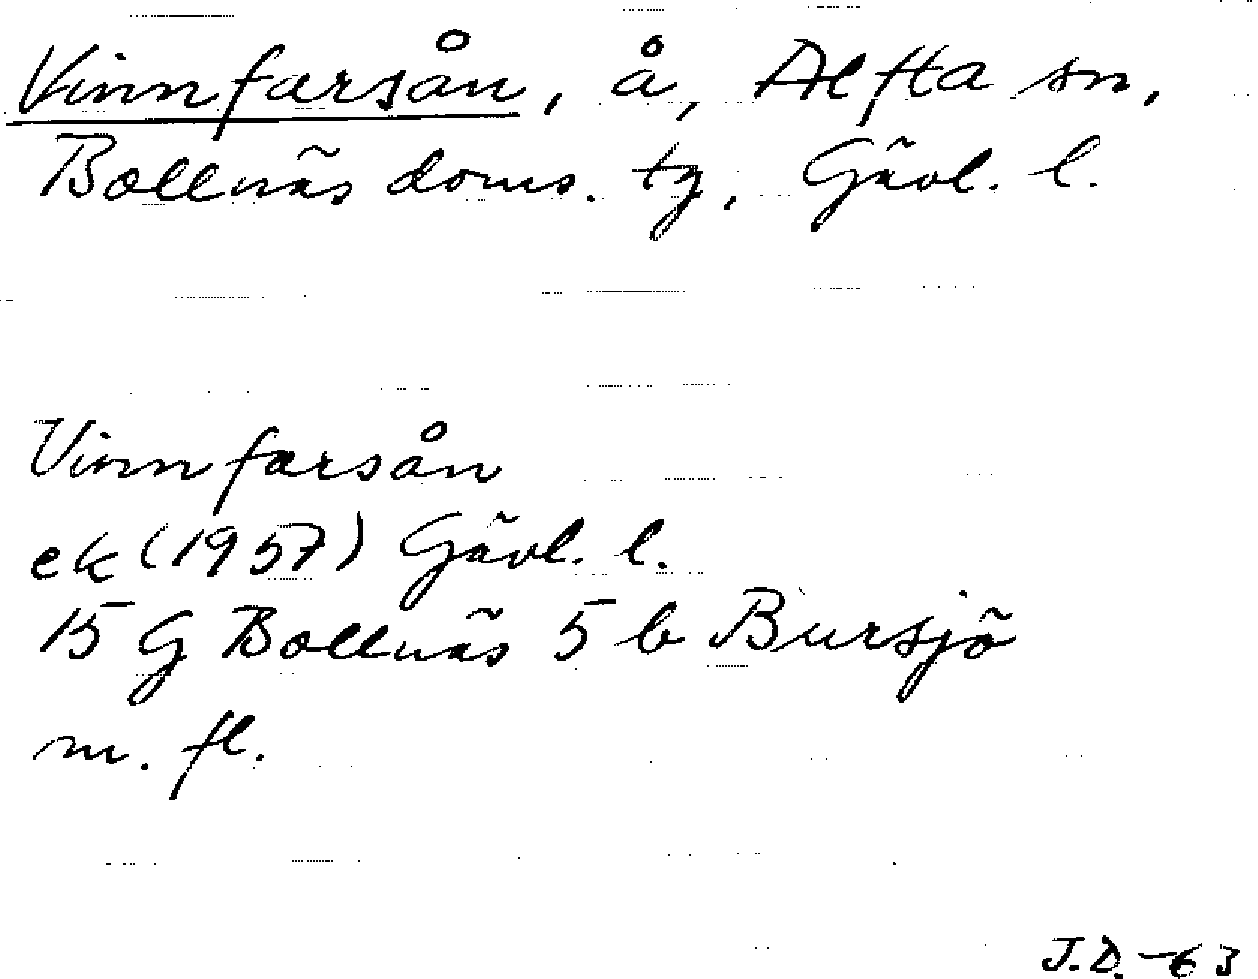 Vinnfarsån, å, Alfta sn,
Bollnäs doms. tg, Gävl. l.
Vinnfarsån
ek (1957) Gävl. l.
15 G Bollnäs 5 b Bursjö
m. fl.
J.D. -63